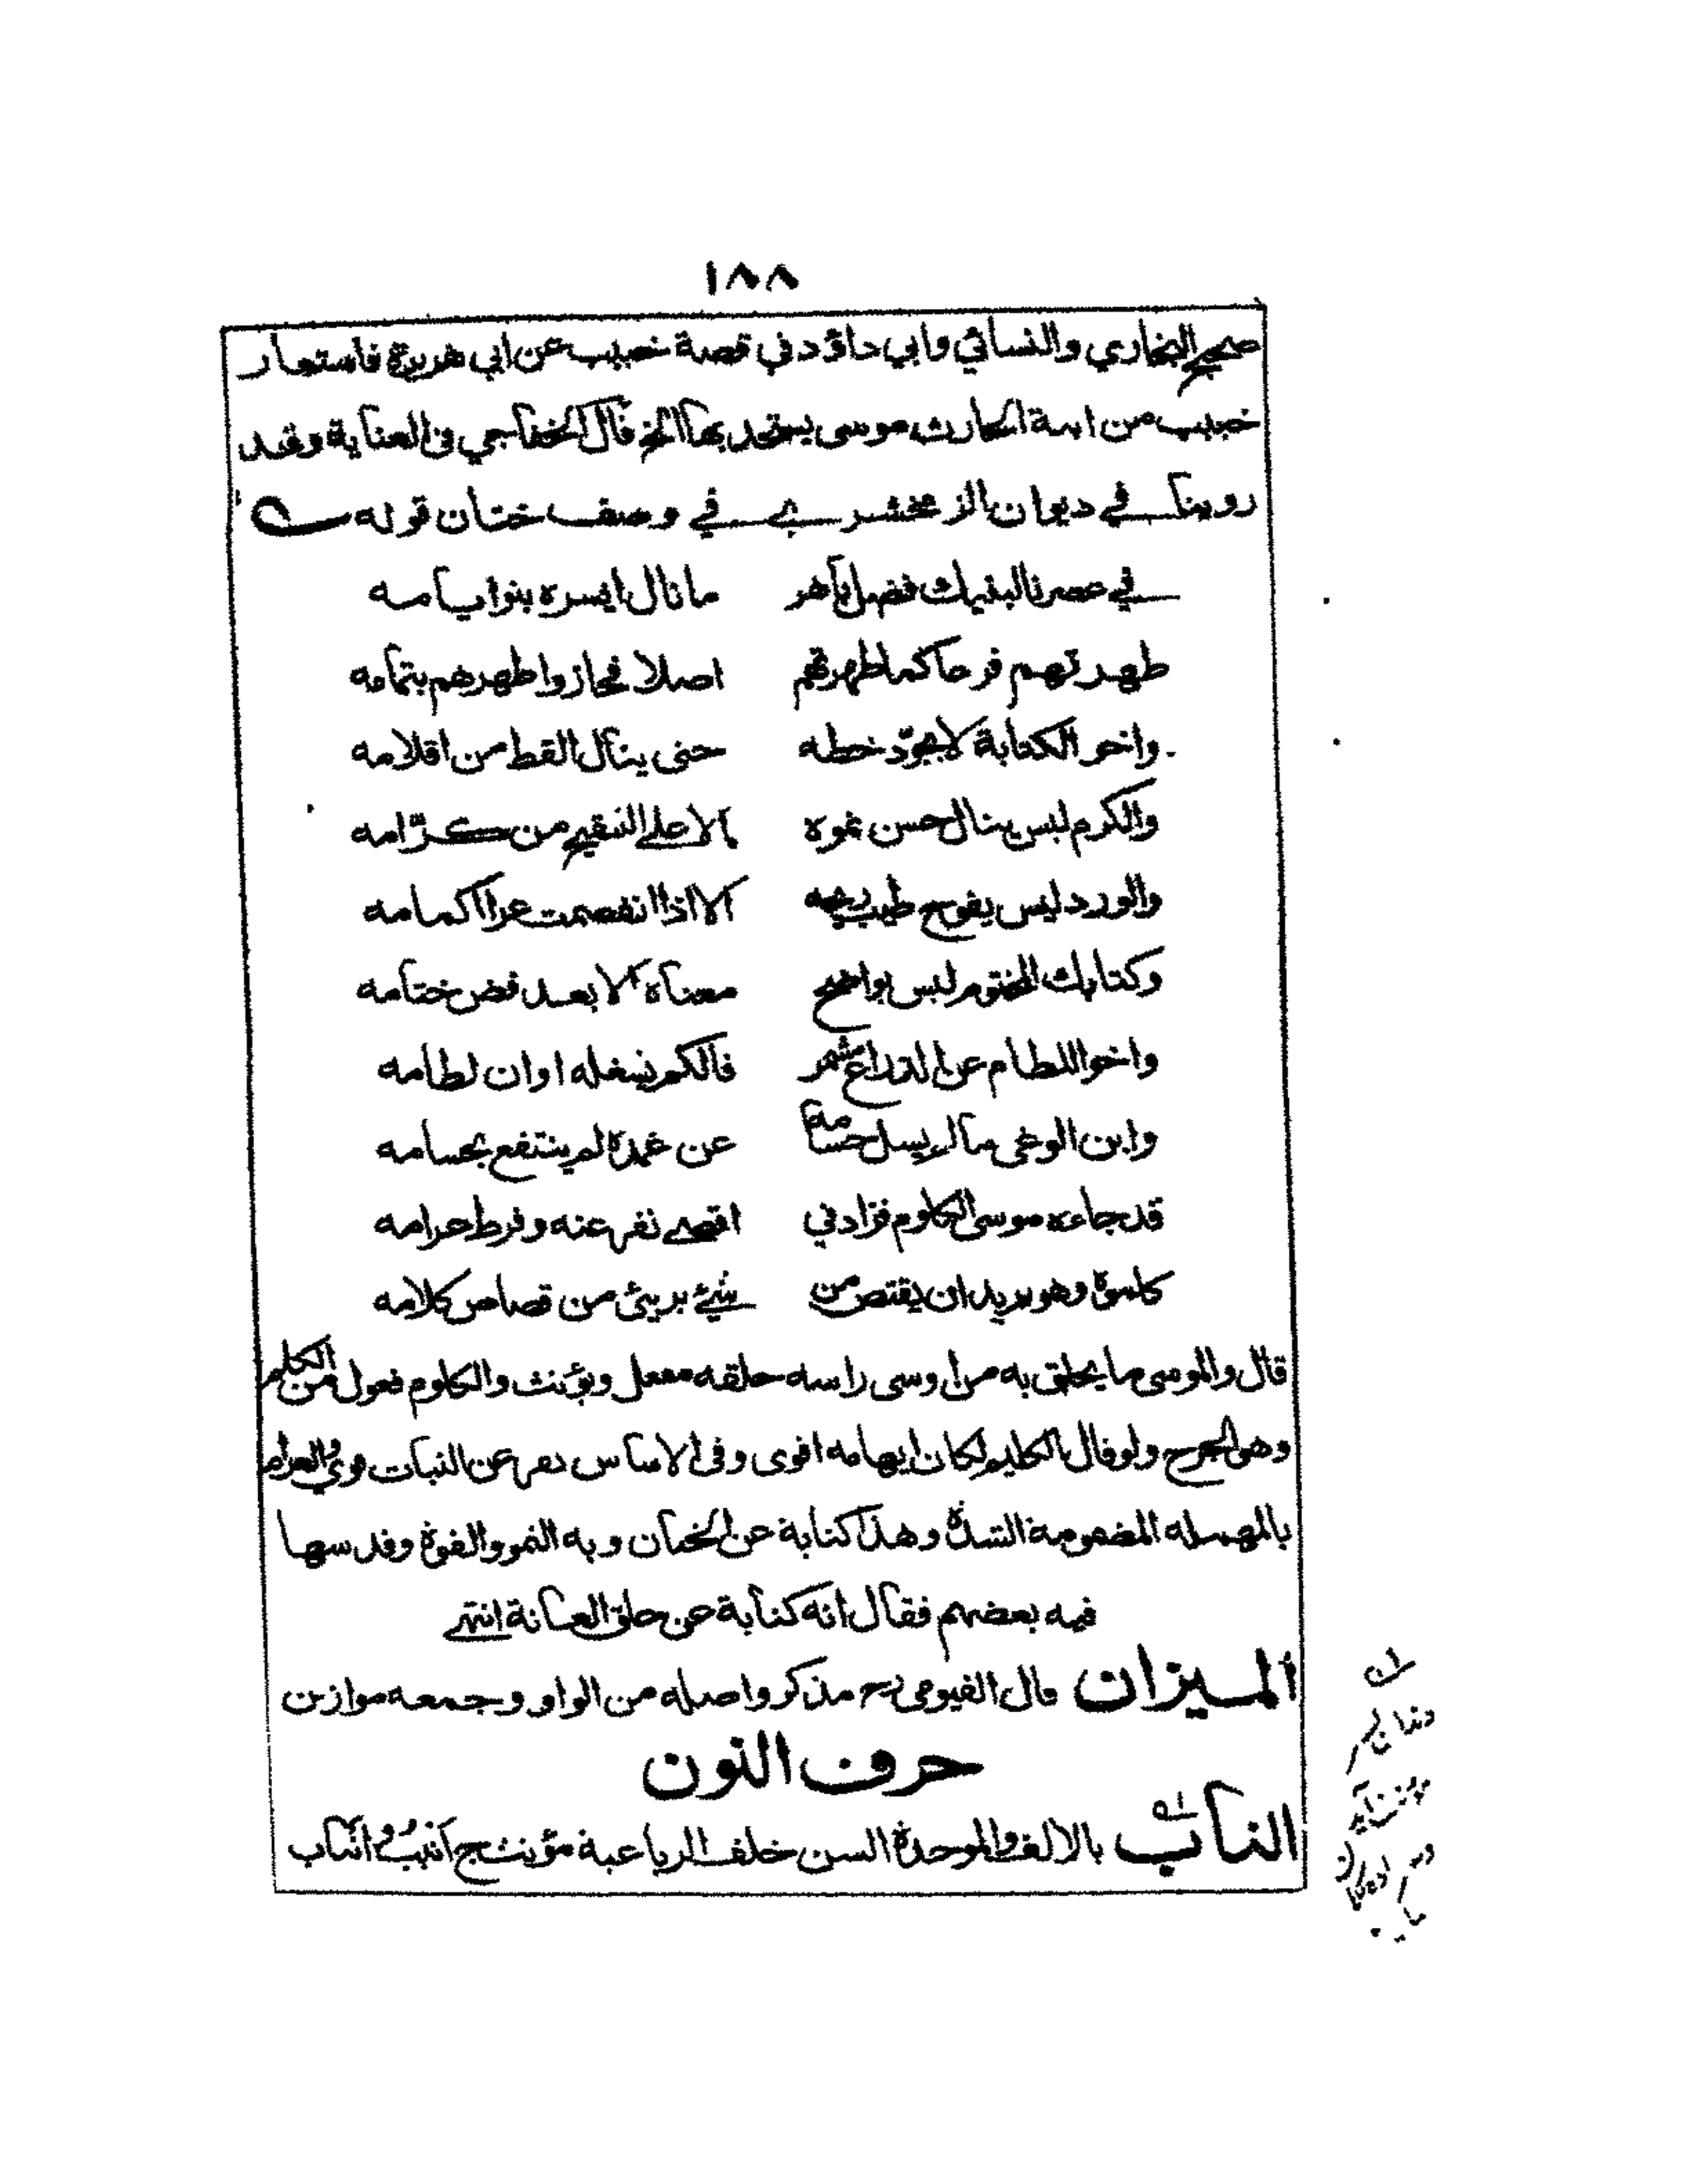 ١٨٨
صحيح البخاري والنسائي وابي داؤد في قصة خبيب عن ابي هريرة فاستعار
خبيب من ابنة الحارث موسى يستحد بها الخ قال الخفاجي في العناية وقد
روينا في ديوان الزمخشري في وصف ختان قوله
في عصرنا لبنيك فضل باهر ما نال ايسره بنوا يامه
طهرتهم فرحا كما طهرتهم اصلا فحازوا طهرهم بتمامه
واخو الكتابة لا يجوّد خطه حتى ينال القط من اقلامه
والكرم ليس ينال حسن نموه الا على التنقيح من كرّامه
والورد ليس يفوح طيب ريحه الا اذا انفصمت عرا اكمامه
وكتابك المختوم ليس بواضح معناه الا بعد فض ختامه
واخو اللطام عن الذراع مشمر فالكم يشغله اوان لطامه
وابن الوغى ما لم يسل حسامه عن غمده لم ينتفع بحسامه
قد جاءه موسى الكلوم فزاد في اقصى نفر عنه وفرط عرامه
كاسوة وهو يريد ان يقتص من شئ بريئ من قصاص كلامه
قال والموسى ما يحلق به من اوسى راسه حلقه مفعل ويؤنث والكلوم فعول من الكلم
وهو الجرح ولو قال الكليم لكان ايهامه اقوى وفى الاساس عن النبات والعرام
بالمهمله المضمومة الشدة وهذا كناية عن الختان وبه النمو والقوة وقد سها
فيه بعضهم فقال انه كناية عن حلق العانة انتهى
الميزان قال الفيومى رح مذكر واصله من الواو وجمعه موازين
حرف النون
الناب بالالف والموحدة السن خلف الرباعية مؤنث ج انيب وانياب